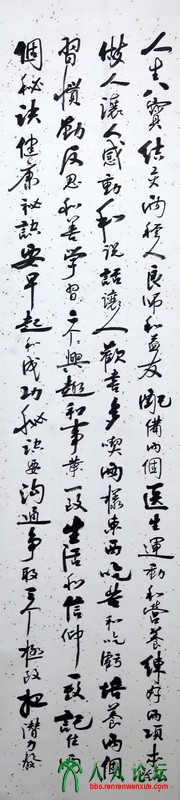 人生八寶結交兩種人良師和益友配備兩個医生運動和營養練好兩項本
做人讓人感動和說話讓人歡喜多喫兩樣東西吃苦和吃虧培養兩個
習慣勤反思和善学習興趣和事業一致生活和信仰一致記住
個秘訣健康秘訣要早起和成功秘訣要沟通争取極致把潛力發
人人论坛
bbs.renrenwenxue.com